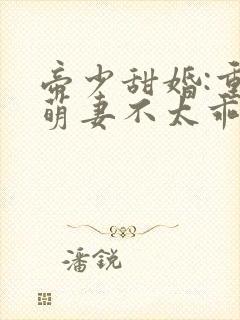 帝少甜婚:重
萌妻不太乖
潘锐